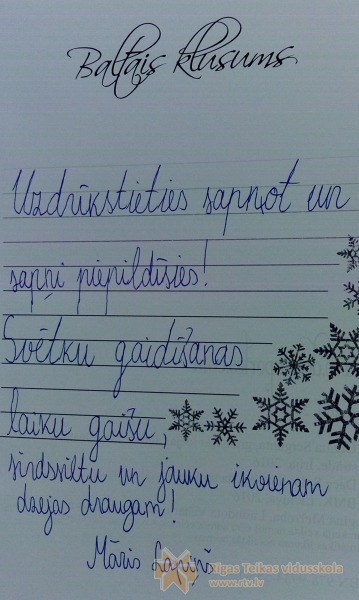 Baltais klusums
Uzdrīkstieties sapņot un
sapņi piepildīsies!
Svētku gaidīšanas
laiku gaišu,
sirdssiltu un jauku ikvienam
dzejas draugam!
Māris Lapiņš
Rīgas Teikas vidusskola
www.rtv.lv